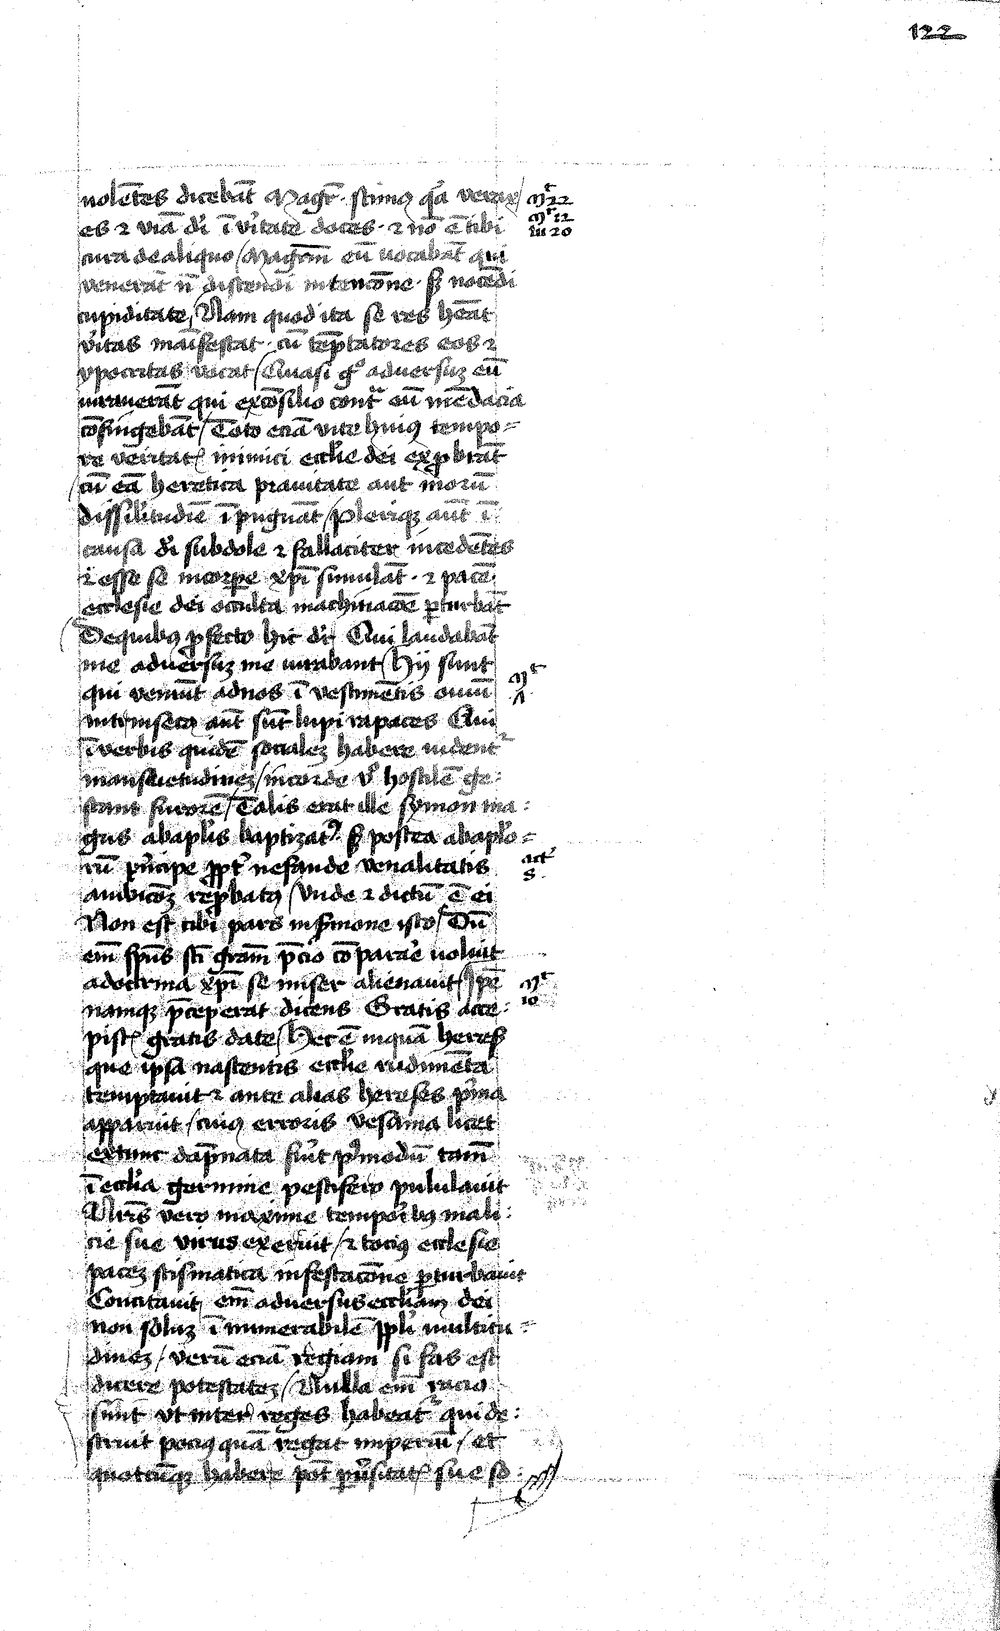 122
nolētes dicebāt Magr̄ · scimꝰ qꝛ verax
es ⁊ viā di ī vītate doces · ⁊ nō ē tibi
cura de aliquo / Magrm̄ eū vocabāt qui
venerāt nō discendi intencōne · sꝫ nocēdi
cupiditate / Nam quod ita se res hēat
vītas maīfestat · cū tēptatores eos ⁊
ypocritas vocat / Quasi gͦ adversuꝫ eū
iuraverāt qui excōsilio contᵃ eū mēdacia
cōfingebāt / Toto eciā vite huiꝰ tempo=
re veritatꝭ inimici eccl̄ie dei exꝓbrāt
cū eā heretica pravitate aut morū
dissilitudīe īpugnāt / Pleriqꝫ aūt ī
causa di subdole ⁊ fallaciter incedētes
⁊ esse se incorꝑe xp̄i simulāt · ⁊ pacē
ecclesie dei occulta machinacōe ꝑturbāt
De quibꝰ ꝓfecto hic dr̄ Qui laudabāt
me adversuꝫ me iurabant / Hij sunt
qui veniūt ad nos ī vestimētis oviū
intrinsecꝰ aūt sūt lupi rapaces Qui
ī verbis quidē socialeꝫ habere vident᷑
mansuetudineꝫ / incorde vͦ hostilē ge=
stant furorē / Talis erat ille symon ma=
gus ab apl̄is baptizatꝰ sꝫ postea ab apl̄o=
rū pͥncipe ꝓpt̄ nefande venalitatis
ambicōꝫ reꝓbatꝰ / Vnde ⁊ dictū ē ei
Non est tibi pars in s̄mone isto / Dū
em̄ sp̄us sc̄i gram̄ p̄cio cōparare voluit
a doctrina xp̄i se miser alienavit / Ipē
namqꝫ p̄ceperat dicens Gratis acce=
pistꝭ gratis date / Hec ē inquā heresꝭ
que ipsa nascentis eccl̄ie rudimēta
temptavit ⁊ ante alias hereses pͥma
apparuit / cuiꝰ erroris vesania licet
extunc dāpnata fūit pͦmodū tam̄
ī eccl̄ia germine pestifero pululavit
Nr̄is vero maxime temporibꝰ mali=
cie sue virus exeruit / ⁊ tociꝰ ecclesie
paceꝫ scismatica infestacōne ꝑturbavit
Concitavit em̄ adversus eccl̄iam dei
non soluꝫ ī numerabilē ppl̄i multitu=
dineꝫ / verū eciā regiam si fas est
dicere potestateꝫ / Nulla em̄ racio
sinit vt inter reges habeat᷑ qui de=
struit pociꝰ quā regat imperiū / et
quotcūqꝫ habere pōt ꝑv̄sitatꝭ sue so=
Mᵗ 22
Mʳ 12
lu 20
Mᵗ
act᷑
8
Mᵗ
10